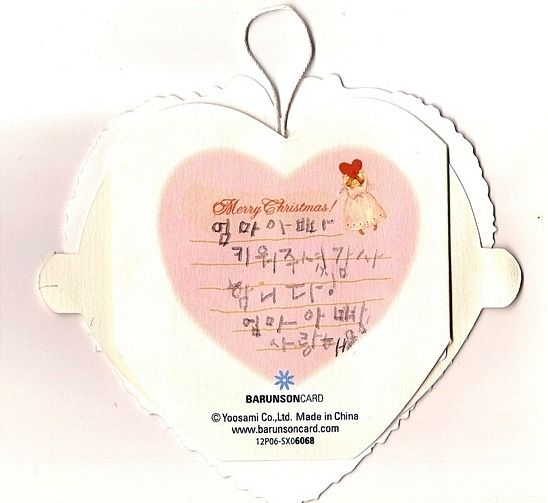 Merry Christmas!
엄마아빠
키워주셔감사
합니다!
엄마아빠
사랑해
BARUNSONCARD
© Yoosami Co.,Ltd. Made in China
www.barunsoncard.com
12P06-SX06068